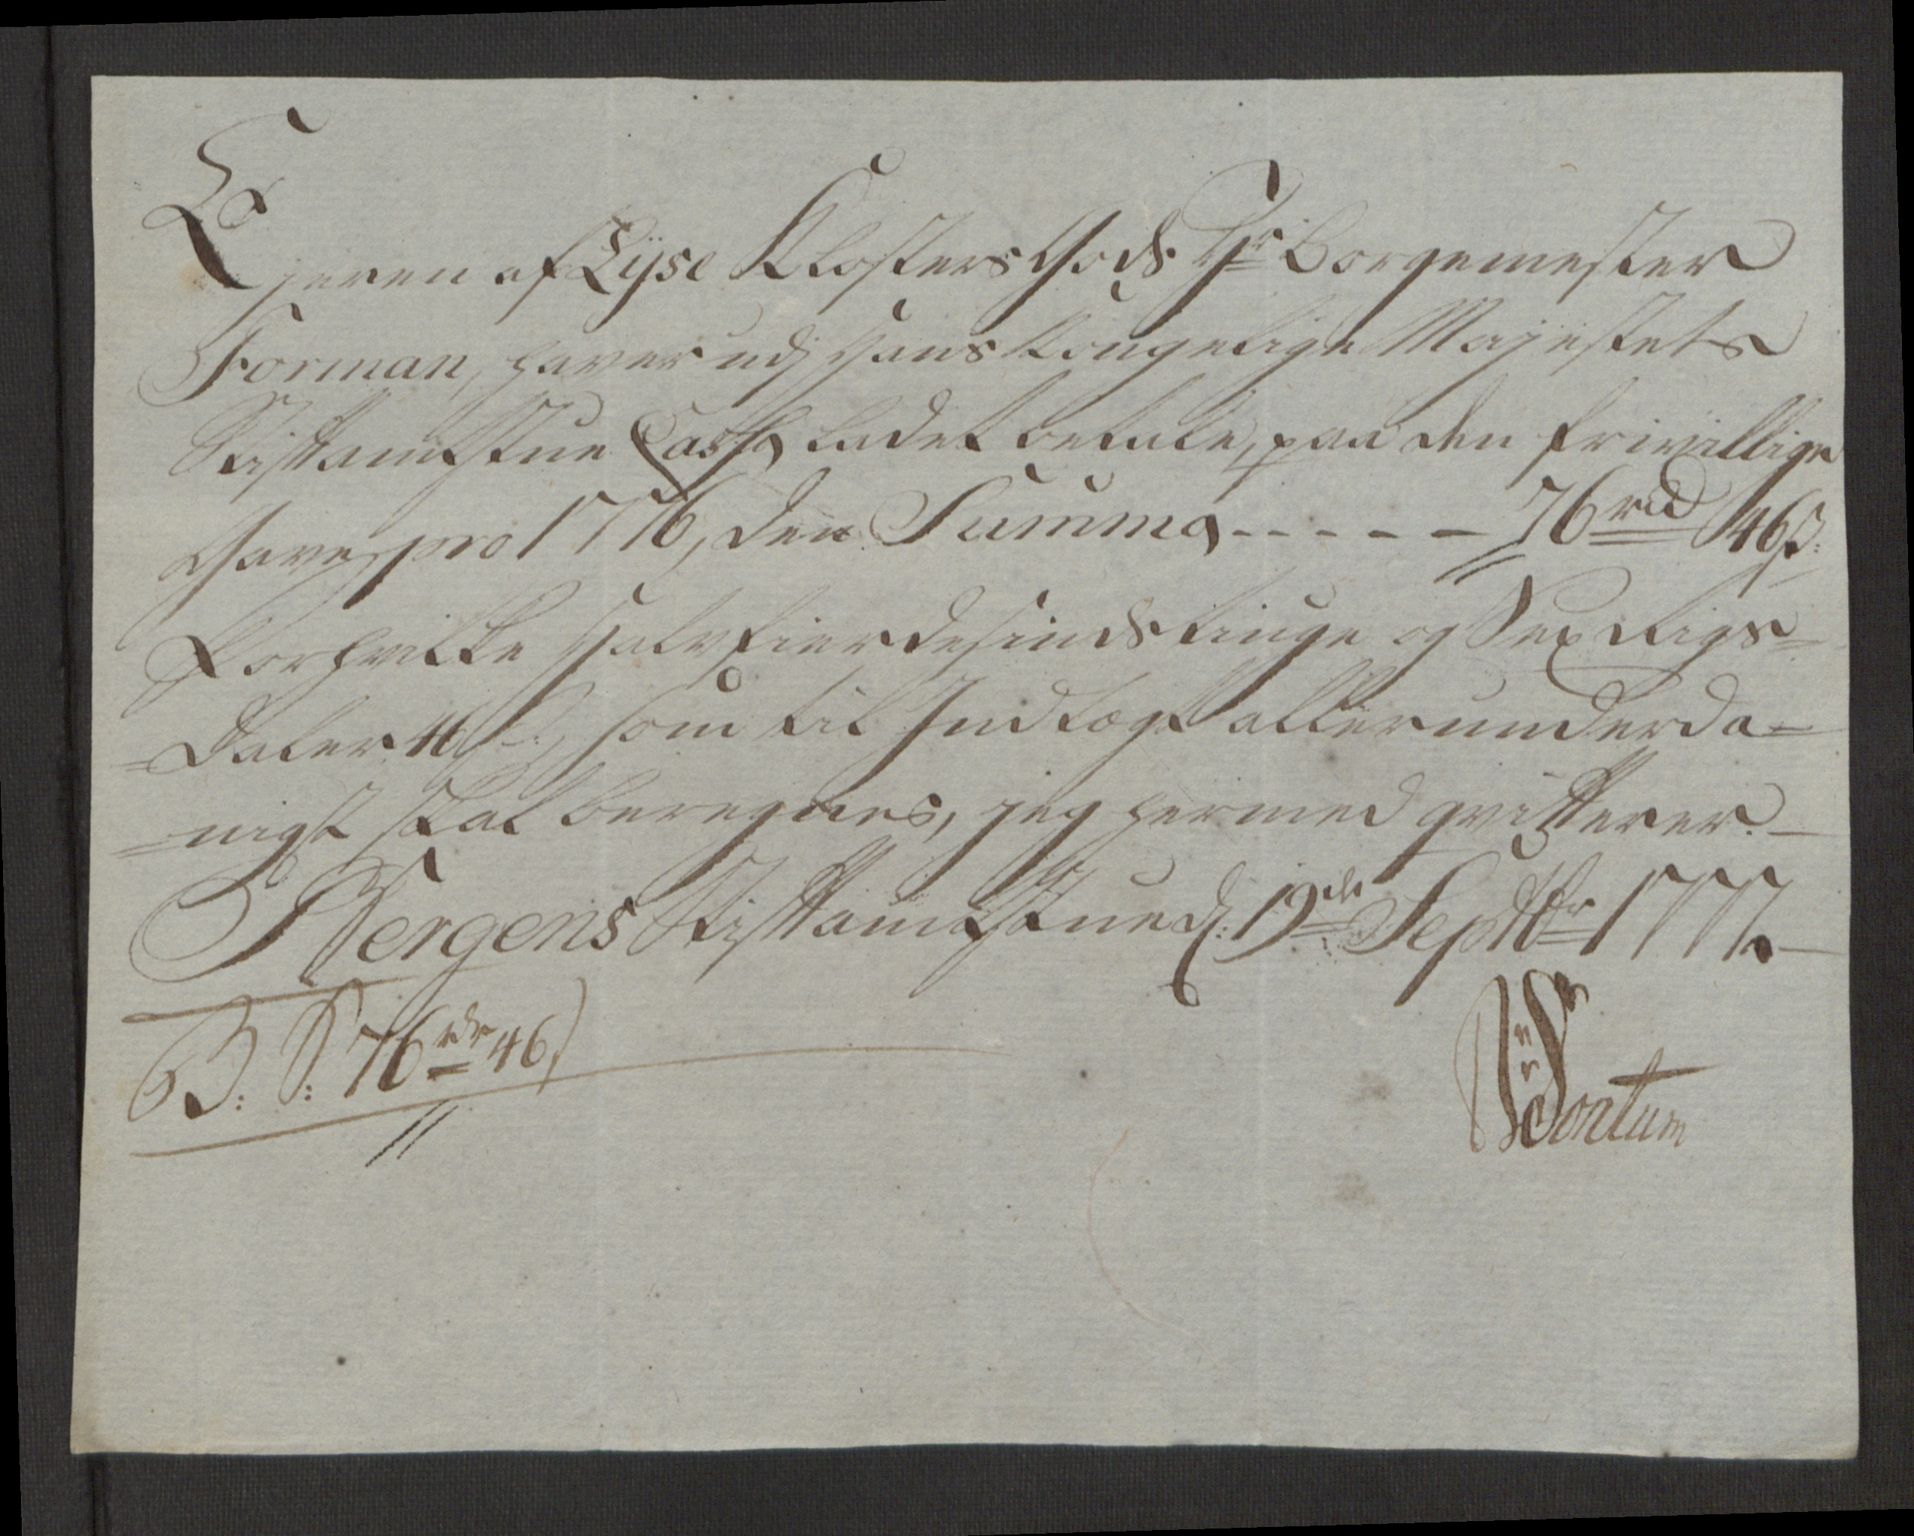 Ejeren af Lyse Klosters Gods Hr: Borgemester
Forman, haver udj Hans Kongelige Majestets
Stiftamtstue Cassa ladet betale, paa den frivillige
Gave pro 1776, den Summa - - - - - 76 rd 46 s:
skrifver Halvfierdesindstiuge og Sex Rigs-
-daler 46 s:, som til Indtægt allerunderda-
-nigst skal beregnes, jeg hermed qvitterer. -
Bergens Stiftamtstue d: 19de Septbr 1777. -
B: S: 76 rdr 46 s
Sontum